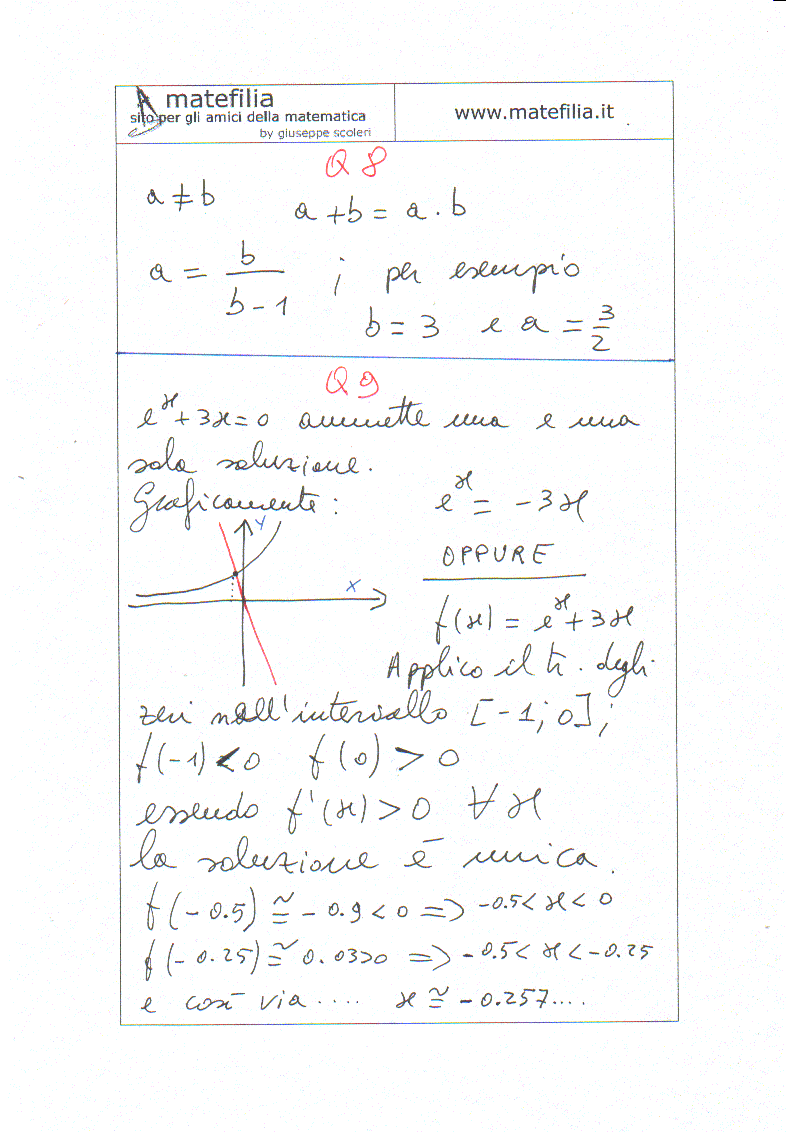 matefilia
sito per gli amici della matematica
by giuseppe scoleri
www.matefilia.it
Q 8
a ≠ b a + b = a · b
a = b/(b - 1) ; per esempio
b = 3 e a = 3/2
Q 9
e^x + 3x = 0 ammette una e una
sola soluzione.
Graficamente: e^x = -3x
y
x
OPPURE
f(x) = e^x + 3x
Applico il th. degli
zeri nell'intervallo [-1; 0];
f(-1) < 0 f(0) > 0
essendo f'(x) > 0 ∀ x
la soluzione è unica.
f(-0.5) ≅ -0.9 < 0 => -0.5 < x < 0
f(-0.25) ≅ 0.03 > 0 => -0.5 < x < -0.25
e così via .... x ≅ -0.257....